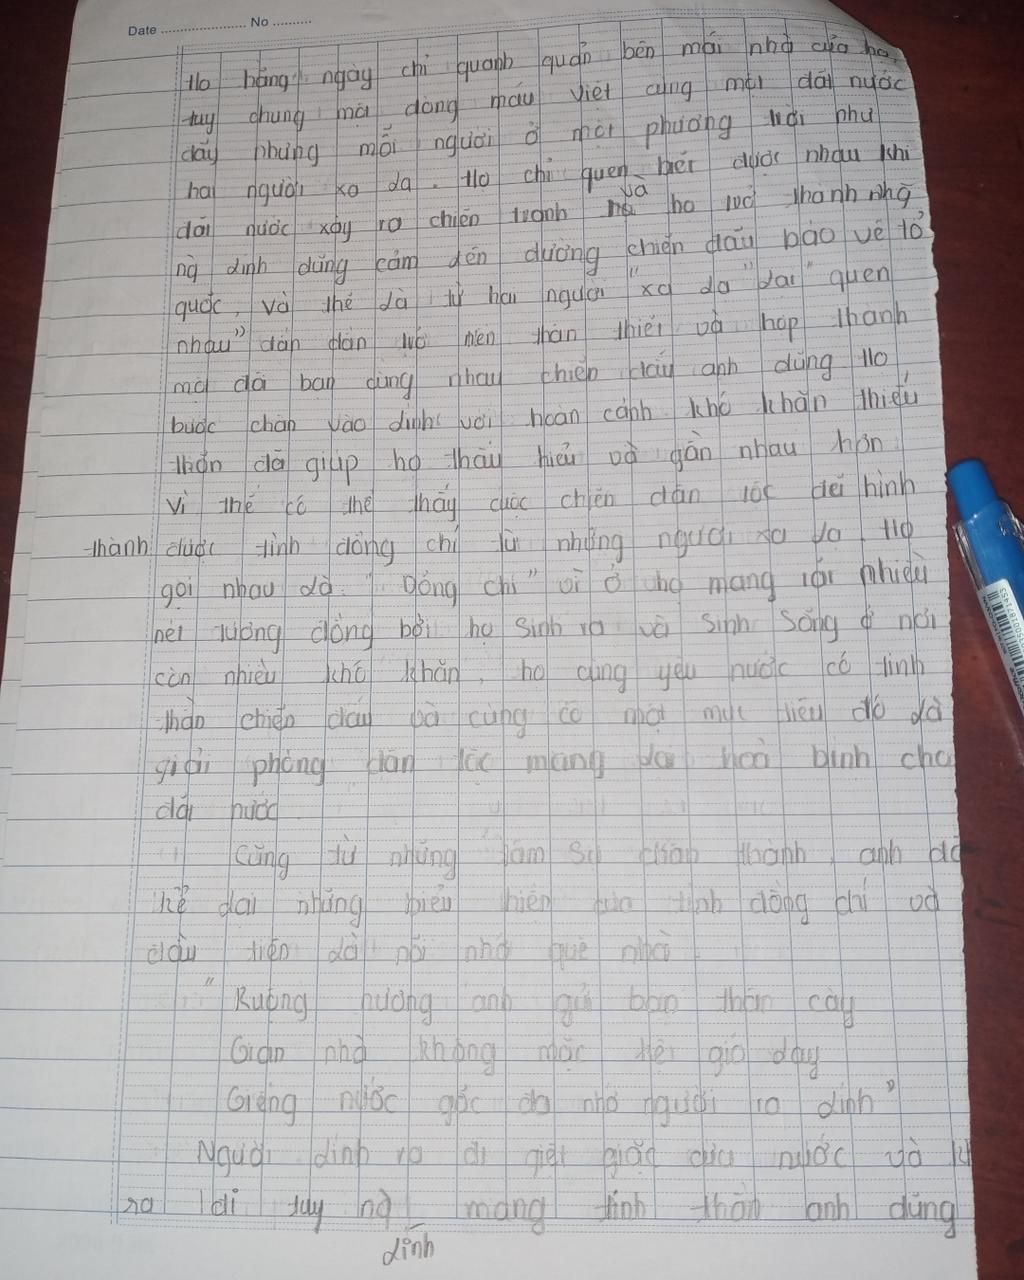 Date ........................ No ..........
Họ hằng ngày chỉ quanh quẩn bên mái nhà của họ,
tuy chung một dòng máu việt cùng một đất nước
đấy nhưng mỗi người ở một phương trời như
hai người xa lạ. Họ chỉ quen biết được nhau khi
và
đất nước xảy ra chiến tranh họ trở thanh nhữ
ng lính dũng cảm lên đường chiến đấu bảo vệ tổ
quốc, và thế là từ hai người "xa lạ" lại "quen
nhau" dần dần trở nên thân thiết và hợp thanh
một đôi bạn cùng nhau chiến đấu anh dũng Họ
bước chân vào lính với hoàn cảnh khó khăn thiếu
thốn đã giúp họ thấu hiểu và gần nhau hơn.
Vì thế có thể thấy cuộc chiến dân tộc để hình
thành được tình đồng chí từ những người xa lạ. Họ
gọi nhau là "Đồng chí" vì ở họ mang rất nhiều
nét tương đồng bởi họ sinh ra và sinh sống ở nơi
còn nhiều khó khăn, họ cùng yêu nước có tinh
thần chiến đấu và cùng có một mục tiêu đó là
giải phóng dân tộc mang lại hoà bình cho
đất nước
Cũng từ những tâm sự chân thành, anh đã
kể lại những biểu hiện của tình đồng chí và
đầu tiên là nỗi nhớ quê nhà
"Ruộng nương anh gửi bạn thân cày
Gian nhà không mặc kệ gió lay
Giếng nước gốc đa nhớ người ra lính"
Người lính ra đi giết giặc cứu nước và
ra đi tuy ng mang tinh thần anh dũng
lính